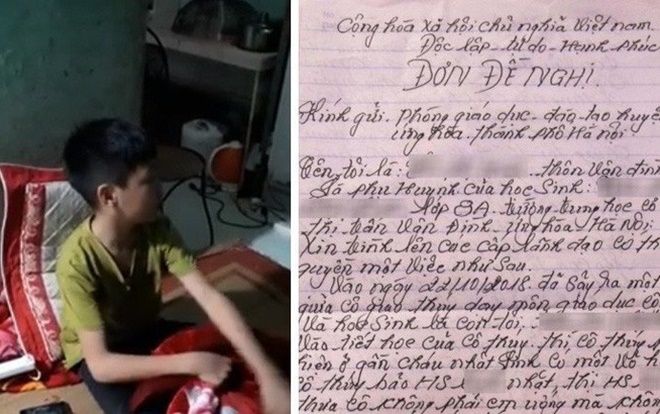 Cộng hòa xã hội chủ nghĩa việt nam
Độc lập - tự do - Hạnh phúc
ĐƠN ĐỀ NGHỊ
Kính gửi. phòng giáo dục - đào tạo huyệ
ứng hòa. thành phố Hà nội.
Tên tôi là: thôn vân đình
Là phụ Huynh của học sinh:
lớp 8A. trường trung học cơ
thị trấn vân Đình - ứng hòa Hà Nội.
Xin trình lên các cấp lãnh đạo có th
quyền một việc như sau.
Vào ngày 22/10/2018. đã sảy ra một
giữa cô giáo thúy dạy môn giáo dục cô
và học sinh là con tôi,
vào tiết học của cô thúy. thì cô thúy
hiện ở gần cháu nhất Định có một vỏ h
cô thúy bảo HS nhặt, thì HS
thưa cô không phải em uống mà khôn